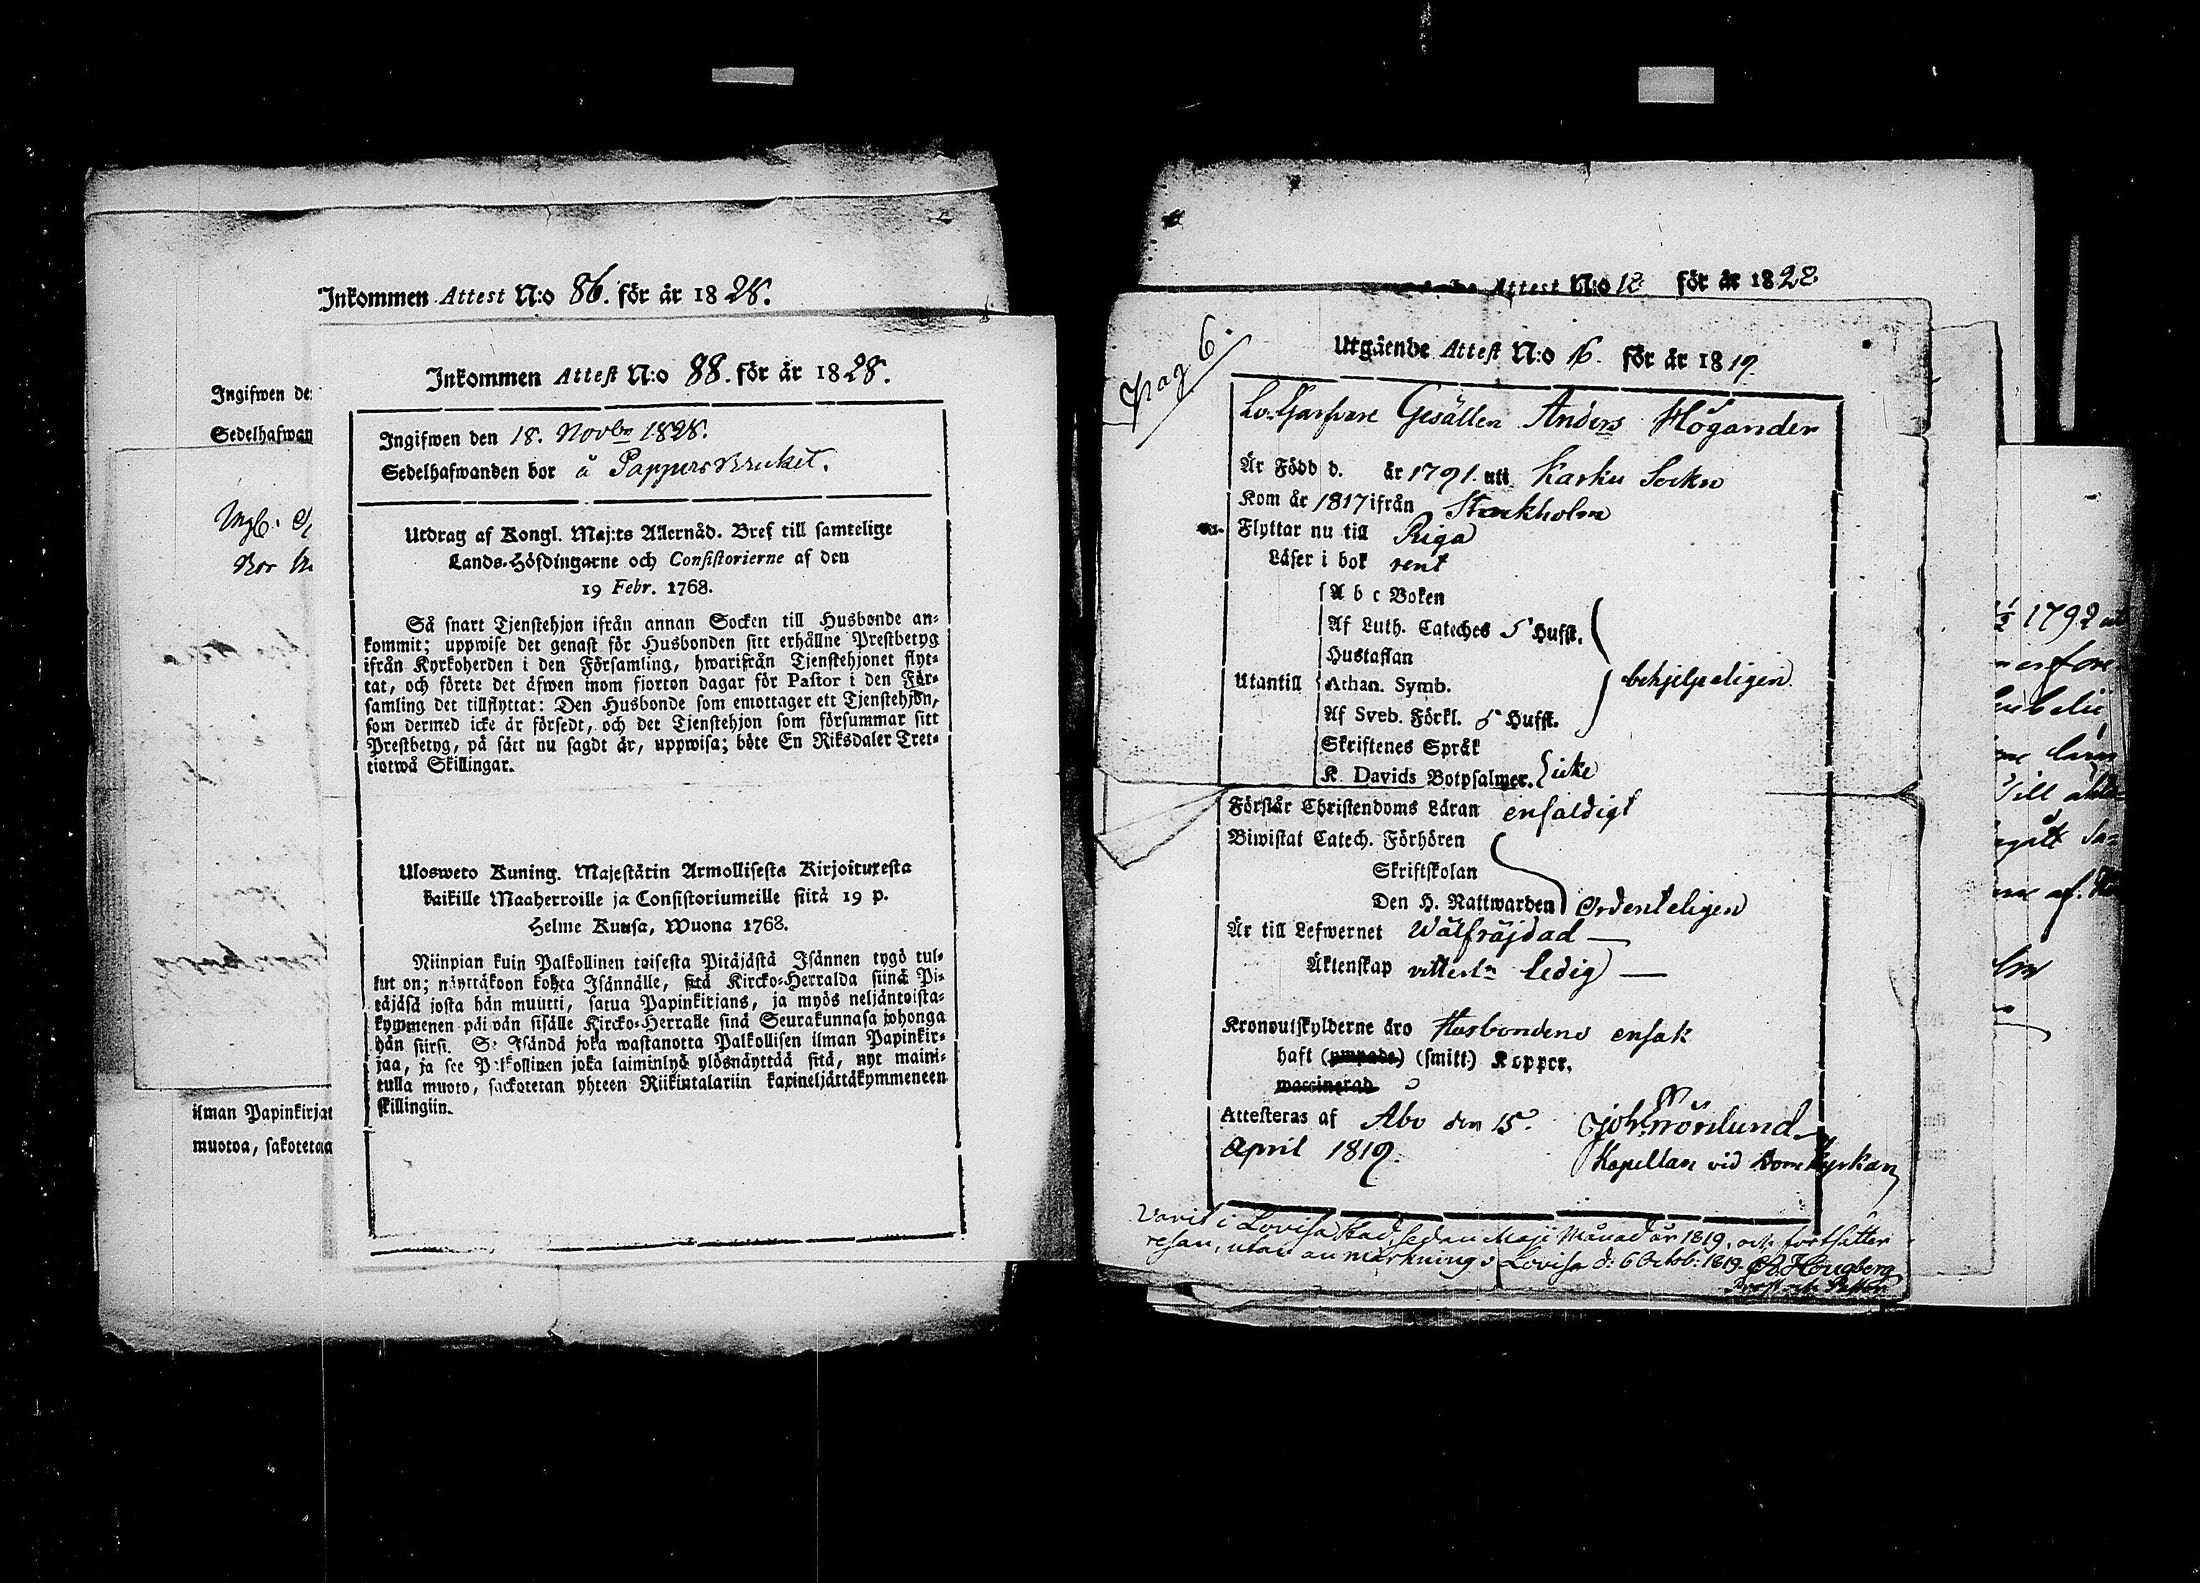 Inkommen Attest N:o 86. för år 1828.
Ingifwen de
Sedelhafwan
ilman Papinkirjat
muotoa, sakotetaa
Inkommen Attest N:o 88. för år 1828.
Ingifwen den 18. Novbr 1828.
Sedelhafwanden bor å Pappersbruket.
Utdrag af Kongl. Maj:ts Allernåd. Bref till samtelige
Lands-Höfdingarne och Consistorierne af den
19 Febr. 1768.
Så snart Tjenstehjon ifrån annan Socken till Husbonde an-
kommit; uppwise det genast för Husbonden sitt erhållne Prestbetyg
ifrån Kyrkoherden i den Församling, hwarifrån Tjenstehjonet flyt-
tat, och förete det äfwen inom fjorton dagar för Pastor i den För-
samling det tillflyttat: Den Husbonde som emottager ett Tjenstehjon,
som dermed icke är försedt, och det Tjenstehjon som försummar sitt
Prestbetyg, på sätt nu sagdt är, uppwisa; böte En Riksdaler Tret-
tiotwå Skillingar.
Ulosweto Kuning. Majestätin Armollisesta Kirjoituxesta
kaikille Maaherroille ja Consistoriumeille siitä 19 p.
Helme Kuusa, Wuona 1768.
Niinpian kuin Palkollinen toisesta Pitäjästä Isännen tygö tul-
lut on; näyttäkoon kohta Isännälle, sitä Kircko-Herralda siinä Pi-
täjäsä josta hän muutti, satua Papinkirjans, ja myös neljäntoista-
kymmenen päiwän sisälle Kircko-Herralle sinä Seurakunnasa johonga
hän siirsi. Se Isändä joka wastanotta Palkollisen ilman Papinkir-
jaa, ja see Palkollinen joka laiminlyö ylösnäyttää sitä, nyt maini-
tulla muoto, sackotetan yhteen Riikintalariin kaxineljättäkymmeneen
skillingiin.
Attest N:o 18 för år 1828
Pag 6.
Utgående Attest N:o 16. för år 1819.
Gesällen Anders Högander
Är Född d. år 1791. uti Karku Sockn
Kom år 1817 ifrån Stockholm
Flyttar nu till Riga
Läser i bok rent
A b c Boken
Af Luth. Cateches 5 Hufst.
Hustaflan
Utantill Athan. Symb. behjelpeligen
Af Sveb. Förkl. 5 Hufst.
Skriftenes Språk
K. Davids Botpsalmer. icke
Förstår Christendoms Läran enfaldigt
Biwistat Catech. Förhören
Skriftskolan
Den H. Nattwarden Ordenteligen
Är till Lefwernet Wälfräjdad
Äktenskap vitterl:n ledig
Kronoutskylderne äro Husbondens ensak
haft (ympade) (smitt) Koppor.
waccinerad
Attesteras af Åbo den 15. Joh: Grönlund
April 1819. Kapellan vid Domkyrkan
Varit i Lovisa Stad sedan Maji Månad år 1819, och fortsätter
resan, utan anmärkning; Lovisa d: 6 Octob: 1819. Hougberg
1792
Till